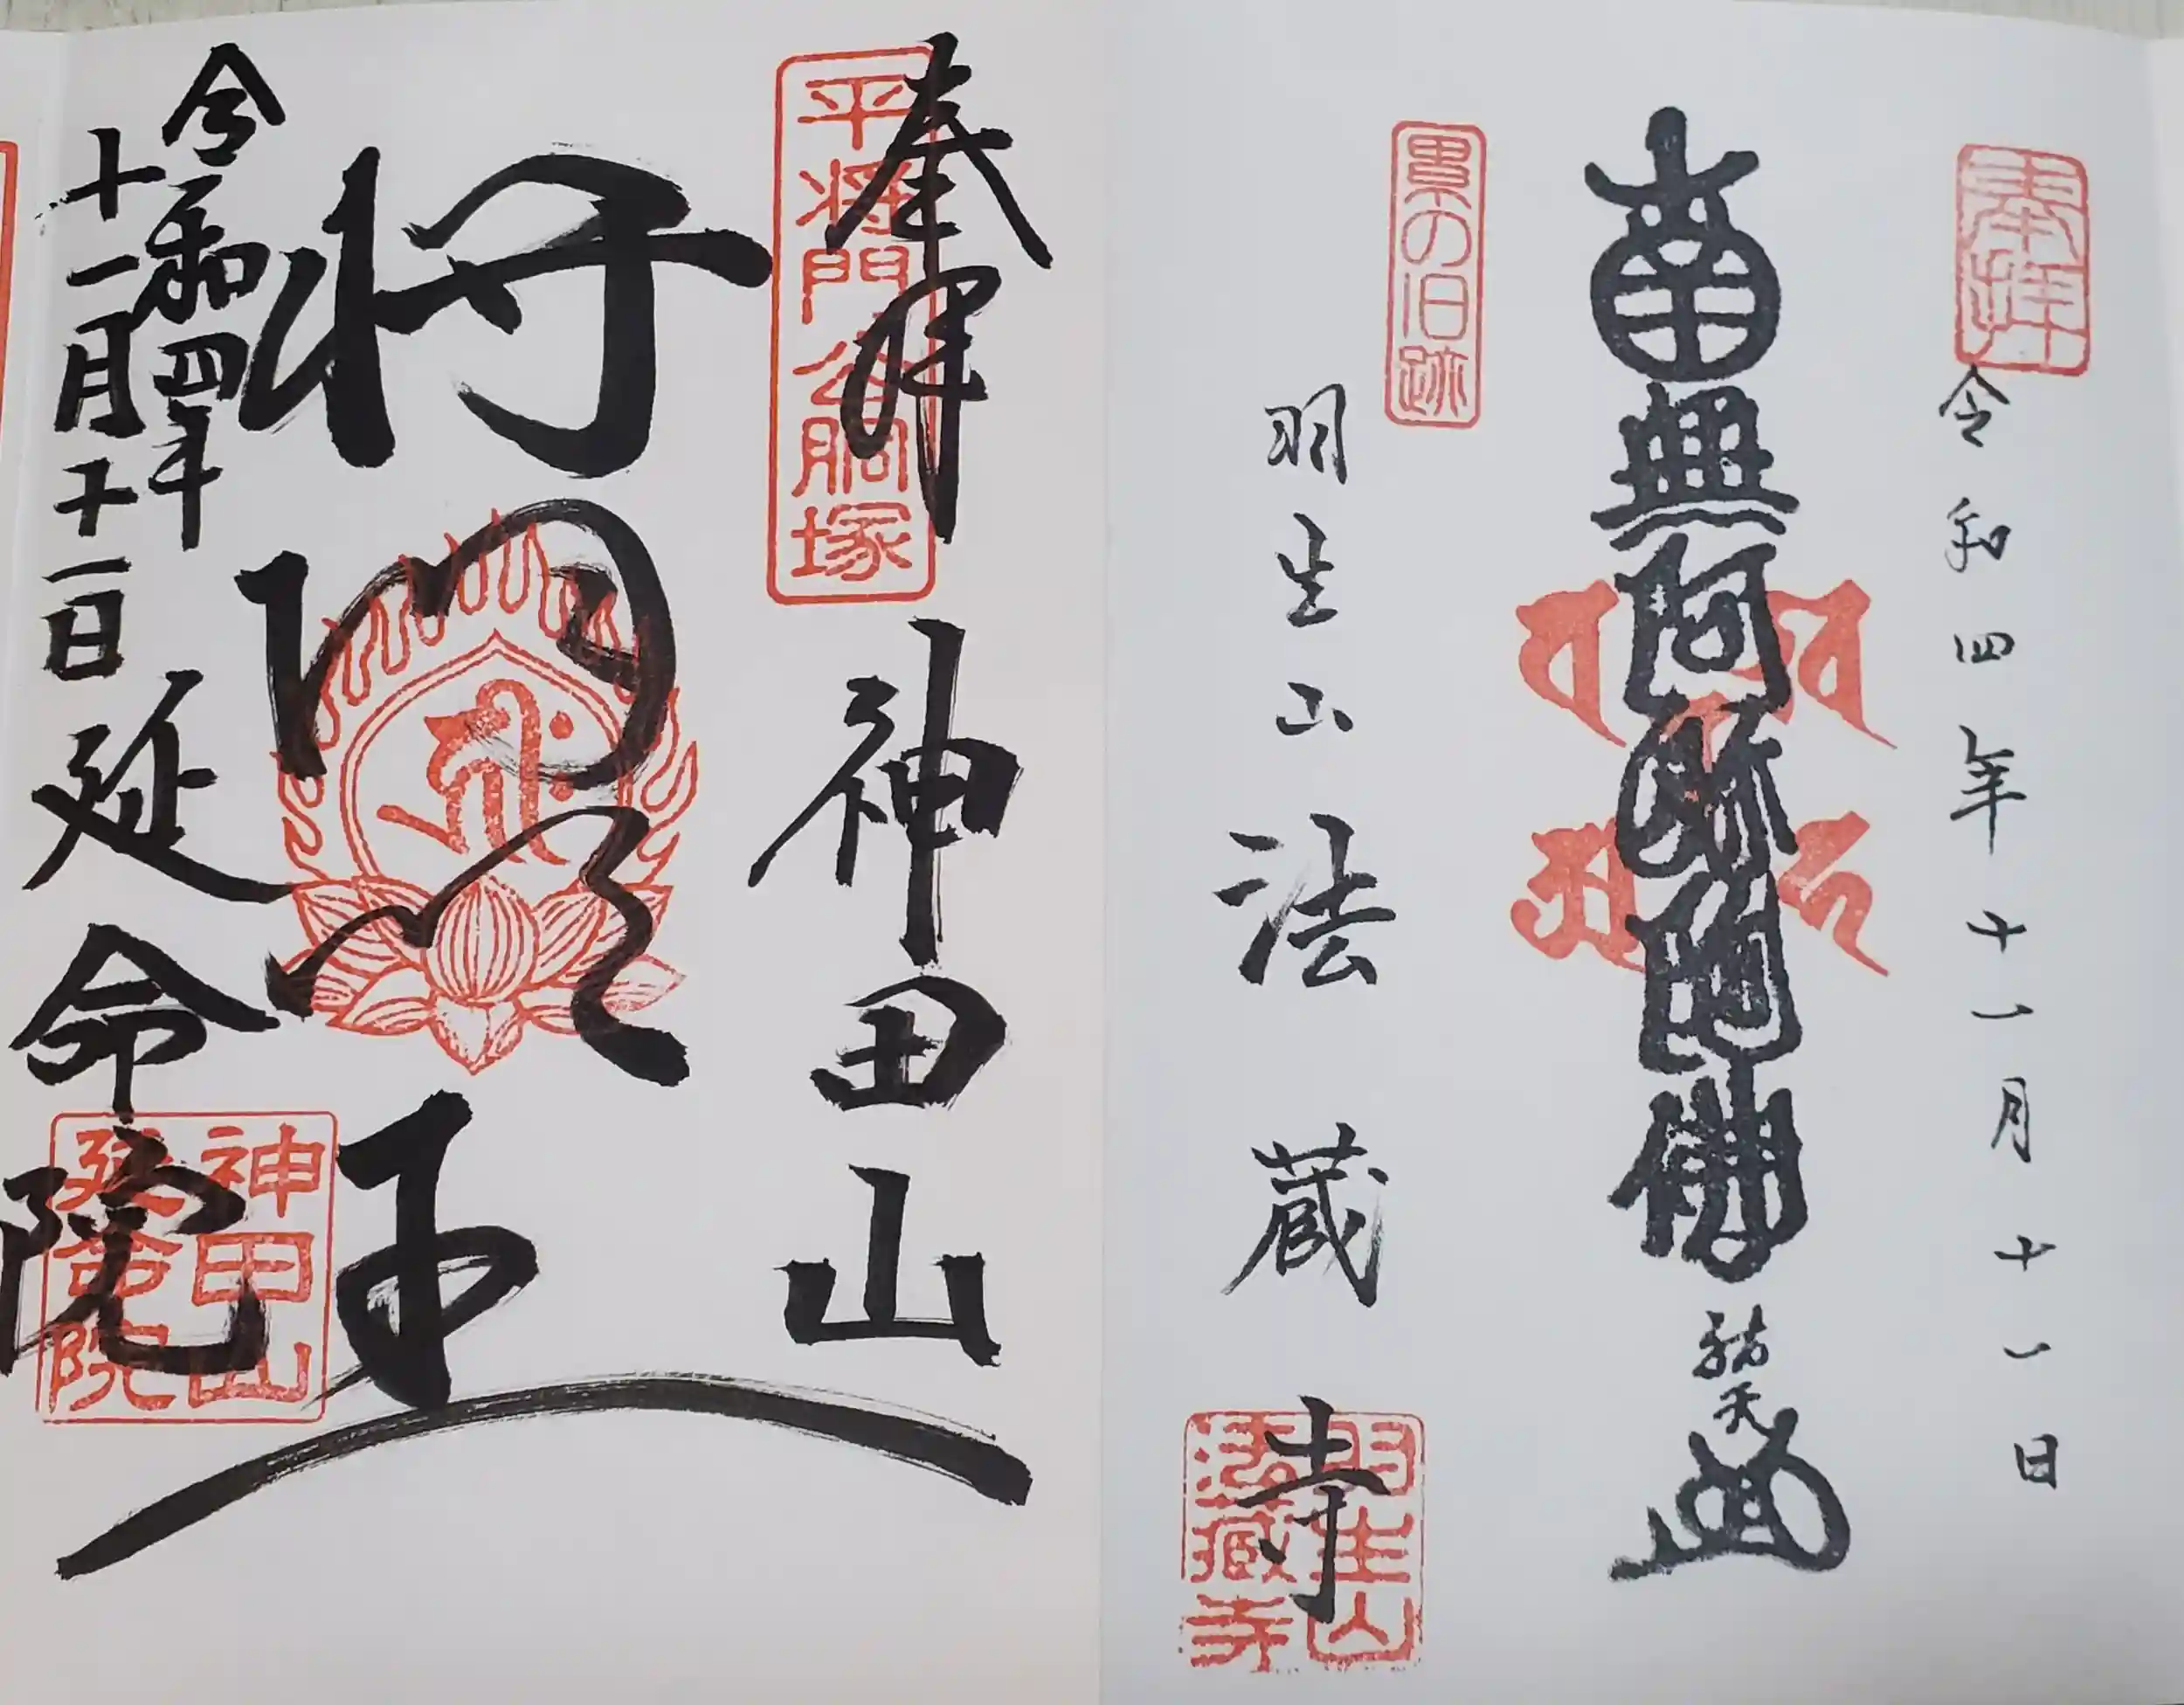 奉拝
令和四年十一月十一日
南無阿弥陀佛
祐天
累の旧跡
羽生山 法蔵寺
羽生山
法蔵寺
奉拝 神田山
平将門公胴塚
将門
令和四年
十一月十一日 延命院
神田山
延命院